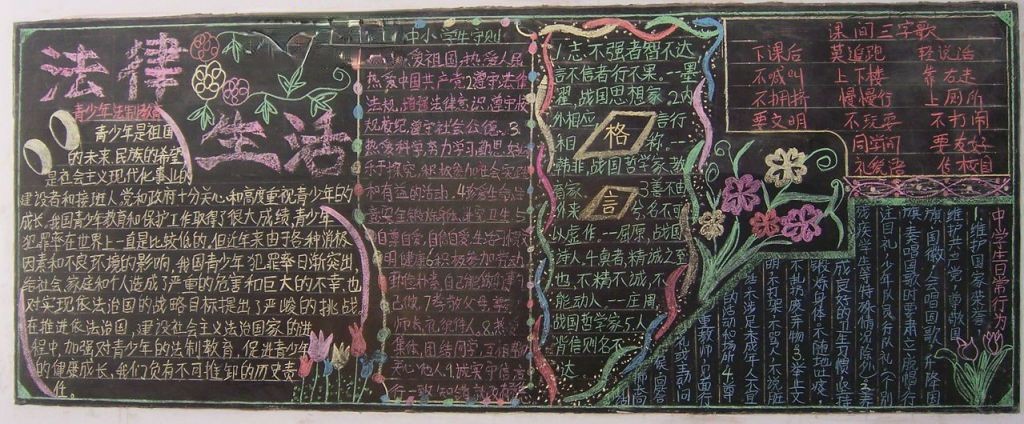 法律
生活
青少年法制教育
青少年是祖国
的未来,民族的希望
是社会主义现代化事业的
建设者和接班人,党和政府十分关心和高度重视青少年的
成长,我国青少年教育和保护工作取得了很大成绩,青少年
犯罪率在世界上一直是比较低的,但近年来由于各种消极
因素和不良环境的影响,我国青少年犯罪率日渐突出
给社会,家庭和个人造成了严重的危害和巨大的不幸,也
对实现依法治国的战略目标提出了严峻的挑战
在推进依法治国,建设社会主义法治国家的进
程中,加强对青少年的法制教育,促进青少年
的健康成长,我们负有不可推卸的历史责
任。
中小学生守则
1.爱祖国,热爱人民
热爱中国共产党2遵守法律
法规,增强法律意识,遵守校
规校纪,遵守社会公德。3
热爱科学,努力学习,勤思好
乐于探究,积极参加社会实践
和有益的活动,4珍爱生命,注
意安全,锻炼身体,讲究卫生5
自尊自爱,自信自强,生活习惯文
明健康6积极参加劳动
7孝敬父母,尊
师长,礼貌待人,8热爱
集体,团结同学,互相帮助
关心他人9诚实守信
1.志不强者智不达
言不信者行不果。一墨
翟,战国思想家。2内
外相应
言行
相
称。一
韩非,战国哲学家,教
育家
3善不由
外来
兮名不可
以虚作。一屈原,战国
诗人4真者,精诚之至
也,不精不诚,不
能动人。一庄周,
战国哲学家5.人
背信则名不
达
格
言
课间三字歌
下课后 莫追跑 轻说话
不喊叫 上下楼 靠右走
不拥挤 慢慢行 上厕所
要文明 不玩耍 不打闹
同学间 要友好
礼貌语
中学生日常行为
1.维护国家荣誉,
维护共产党,尊敬国
旗,国徽,会唱国歌,升降国
旗,奏唱国歌时要肃立,脱帽行
注目礼,少年队员行队礼(个别
残疾学生等特殊情况除外)2.养
成良好的卫生习惯,坚持
锻炼身体,不随地吐痰,
不乱扔废弃物3.举止文
明,不打架,不骂人,不说脏
话,不涉足未成年人不宜
的活动和场所4.尊
重教师,见面行
礼或主动问